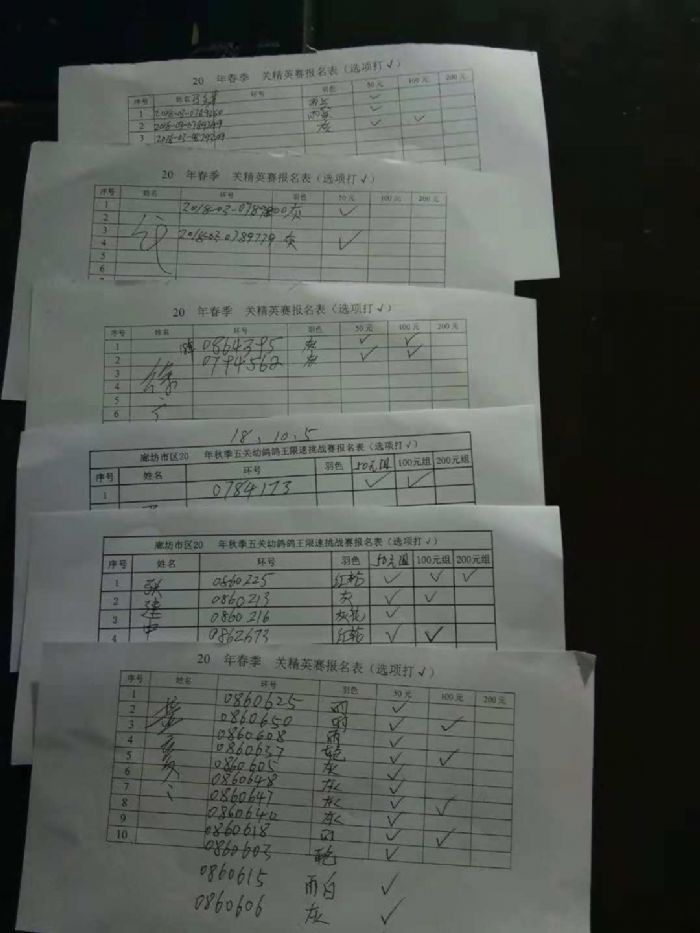 20 年春季 关精英赛报名表（选项打√）
序号 姓名 环号 羽色 50元 100元 200元
1 2018-03-0789260 雨点 √
2 灰 √ √
3
20 年春季 关精英赛报名表（选项打√）
序号 姓名 环号 羽色 50元 100元 200元
1 2018-03-0789800 灰 √
2
3 2018-03-0789779 灰 √
4
5
6
20 年春季 关精英赛报名表（选项打√）
序号 姓名 环号 羽色 50元 100元 200元
1 0864395 灰 √ √
2 0794562 灰 √ √
3 徐
4
5
6
18.10.5
廊坊市区20 年秋季五关幼鸽鸽王限速挑战赛报名表（选项打√）
序号 姓名 环号 羽色 50元组 100元组 200元组
1 0784173 √ √
廊坊市区20 年秋季五关幼鸽鸽王限速挑战赛报名表（选项打√）
序号 姓名 环号 羽色 50元组 100元组 200元组
1 张 0860225 红轮 √ √ √
2 建 0860213 灰 √ √
3 中 0860216 灰花 √
4 0862673 红轮 √ √
20 年春季 关精英赛报名表（选项打√）
序号 姓名 环号 羽色 50元 100元 200元
1 0860625 雨 √
2 0860650 √ √
3 0860608 雨 √
4 0860637 √ √
5 0860605 灰 √
6 0860648 灰 √
7 0860647 灰 √ √
8 0860640 灰 √
9 0860618 √ √
10 0860603 √
0860615 雨白 √
0860606 灰 √